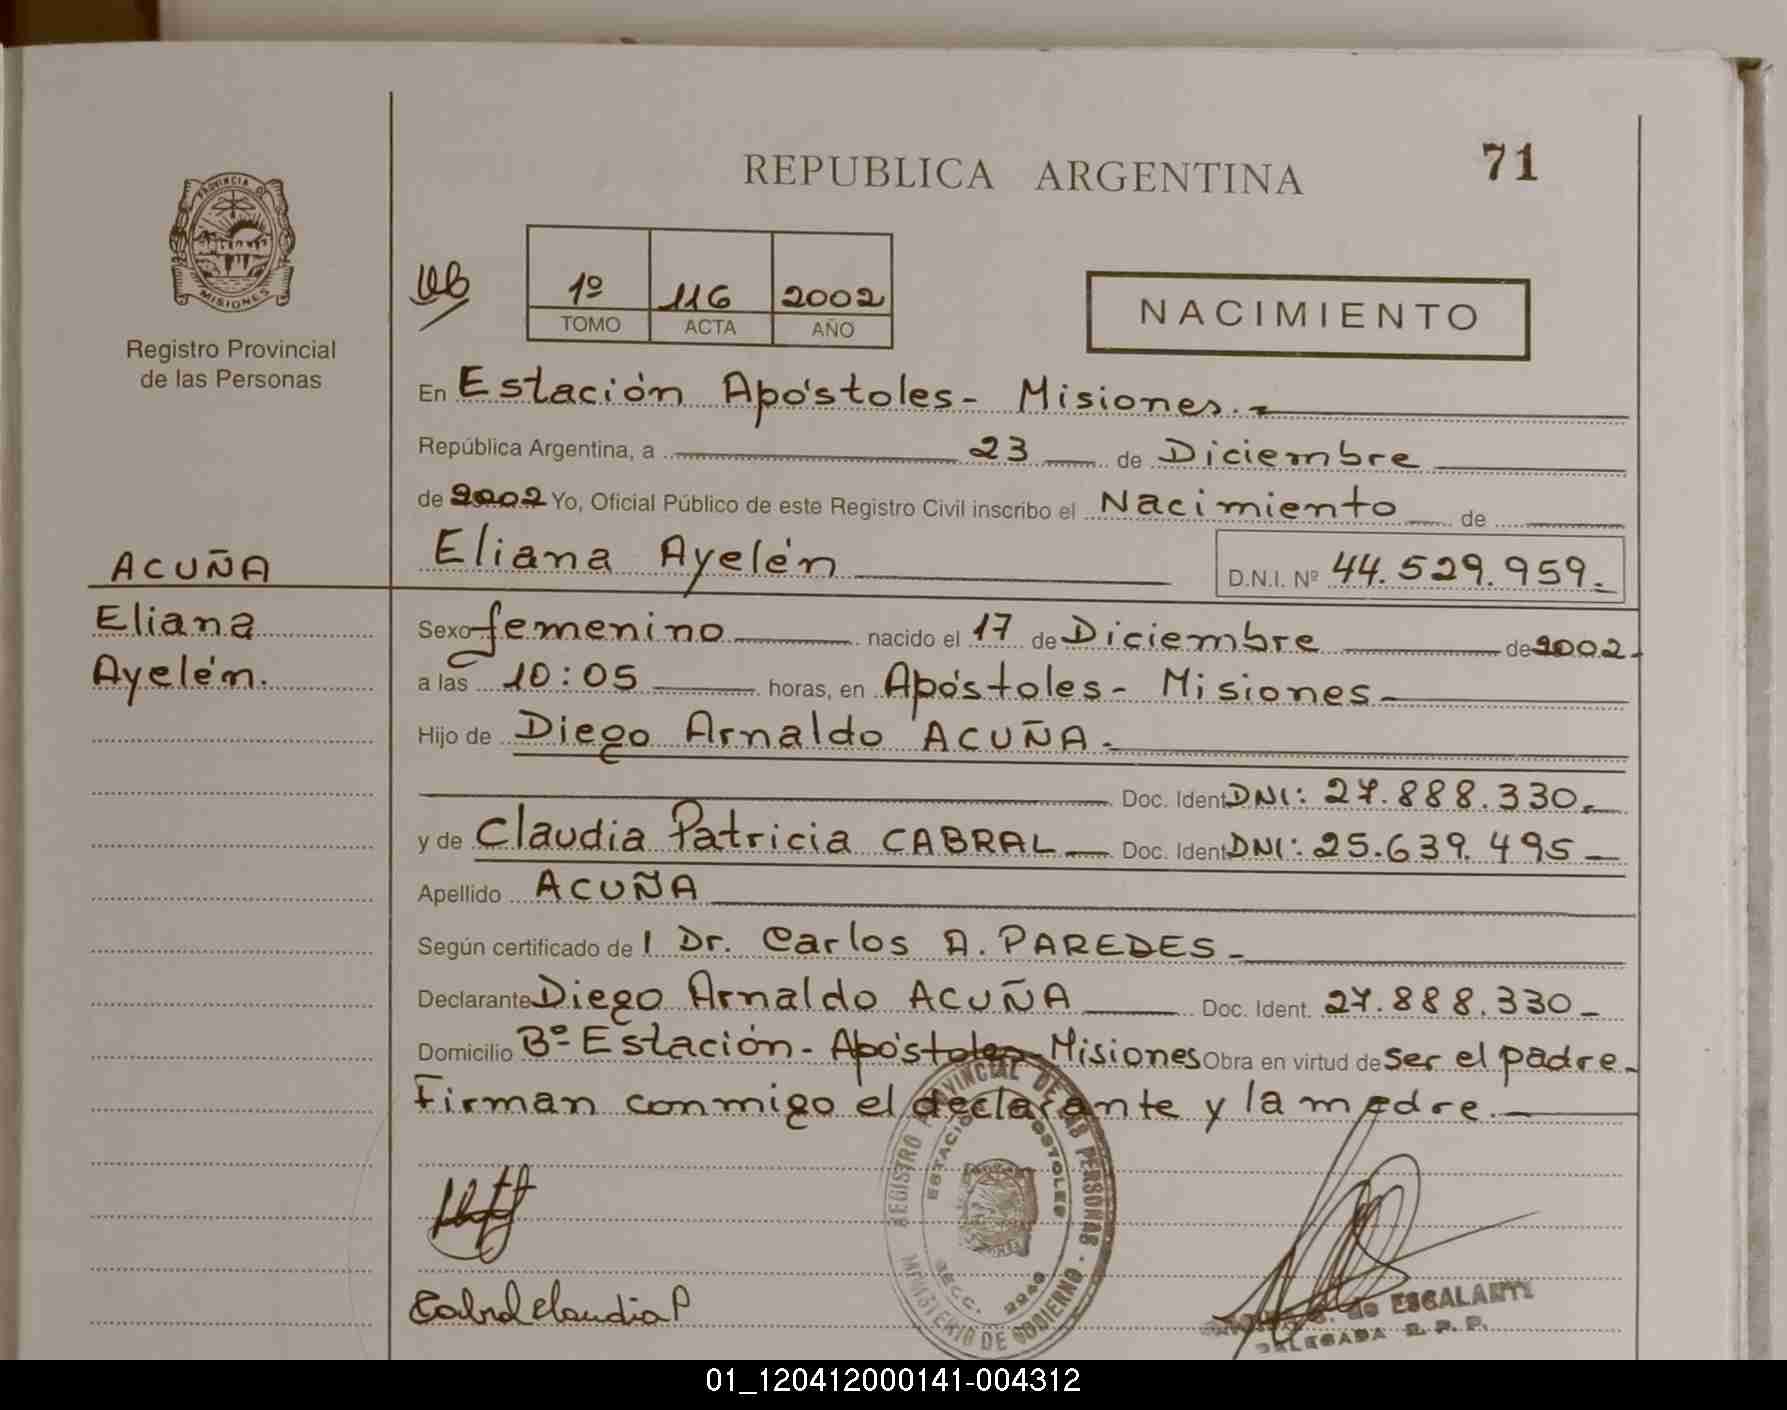 REPUBLICA ARGENTINA
71
PROVINCIA D
MISIONES
Registro Provincial
de las Personas
1º 116 2002
TOMO ACTA AÑO
NACIMIENTO
En Estación Apóstoles - Misiones.-
República Argentina, a 23 de Diciembre
de 2002 Yo, Oficial Público de este Registro Civil inscribo el Nacimiento de
ACUÑA
Eliana Ayelén D.N.I. Nº 44.529.959.-
Eliana
Ayelén.
Sexo femenino nacido el 17 de Diciembre de 2002.
a las 10:05 horas, en Apóstoles - Misiones
Hijo de Diego Arnaldo ACUÑA.-
Doc. Ident. DNI: 27.888.330.-
y de Claudia Patricia CABRAL Doc. Ident. DNI: 25.639.495-
Apellido ACUÑA
Según certificado de l Dr. Carlos A. PAREDES-
Declarante Diego Arnaldo ACUÑA Doc. Ident. 27.888.330-
Domicilio Bº Estación - Apóstoles - Misiones Obra en virtud de ser el padre.-
Firman conmigo el declarante y la madre.-
REGISTRO PROVINCIAL DE LAS PERSONAS
MINISTERIO DE GOBIERNO
ESTACION APOSTOLES
SECC.
Cabral Claudia P
de ESCALANTE
DELEGADA R. P. P.
01_120412000141-004312